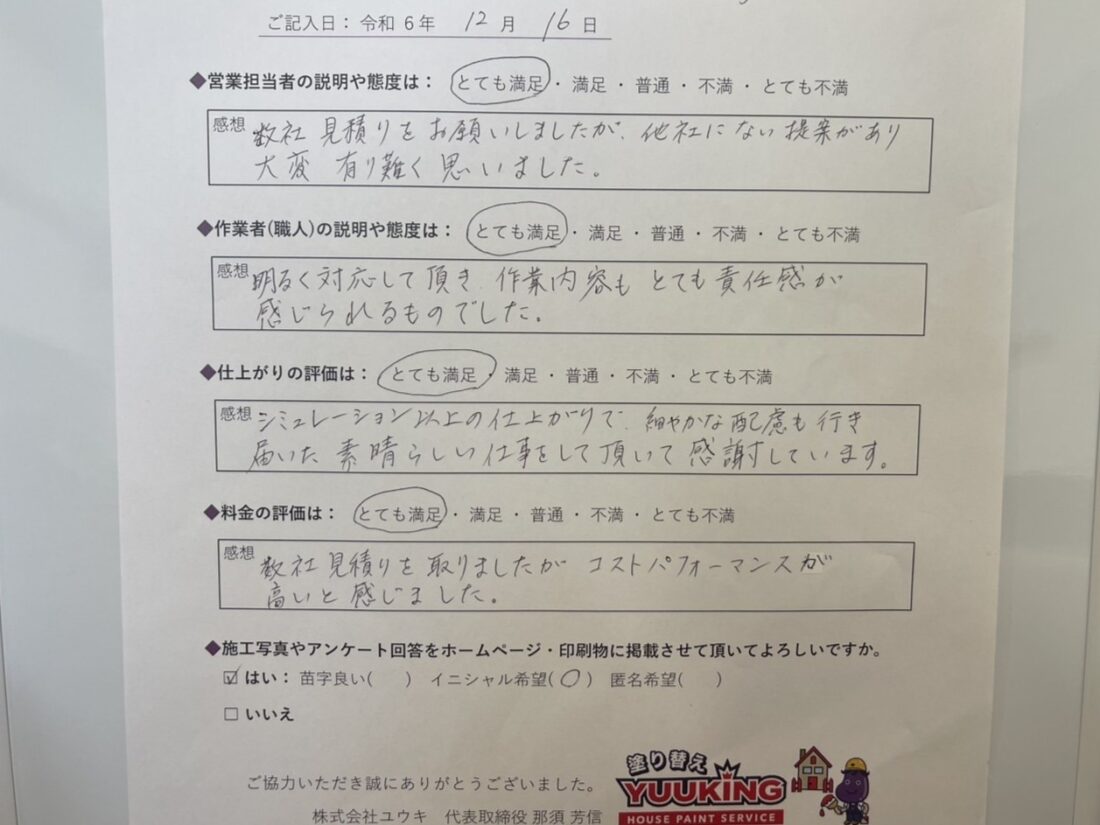 ご記入日：令和6年 12月 16日
◆営業担当者の説明や態度は： とても満足 ・ 満足 ・ 普通 ・ 不満 ・ とても不満
感想 数社 見積りをお願いしましたが、他社にない提案があり
大変 有り難く思いました。
◆作業者(職人)の説明や態度は： とても満足 ・ 満足 ・ 普通 ・ 不満 ・ とても不満
感想 明るく対応して頂き、作業内容もとても責任感が
感じられるものでした。
◆仕上がりの評価は： とても満足 ・ 満足 ・ 普通 ・ 不満 ・ とても不満
感想 シミュレーション以上の仕上がりで、細やかな配慮も行き
届いた素晴らしい仕事をして頂いて感謝しています。
◆料金の評価は： とても満足 ・ 満足 ・ 普通 ・ 不満 ・ とても不満
感想 数社見積りを取りましたがコストパフォーマンスが
高いと感じました。
◆施工写真やアンケート回答をホームページ・印刷物に掲載させて頂いてよろしいですか。
☑ はい： 苗字良い(　) イニシャル希望(○) 匿名希望(　)
□ いいえ
ご協力いただき誠にありがとうございました。
株式会社ユウキ 代表取締役 那須 芳信
塗り替え
YUUKING
HOUSE PAINT SERVICE